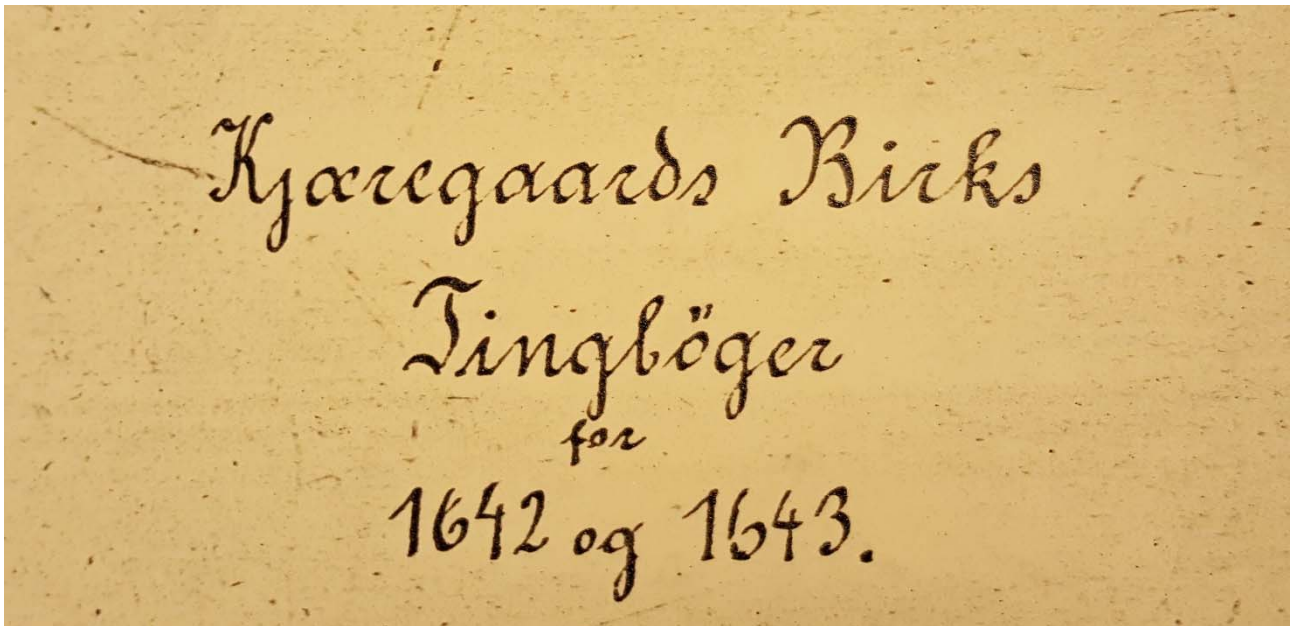 Kjæregaards Birks
Tingböger
for
1642 og 1643.